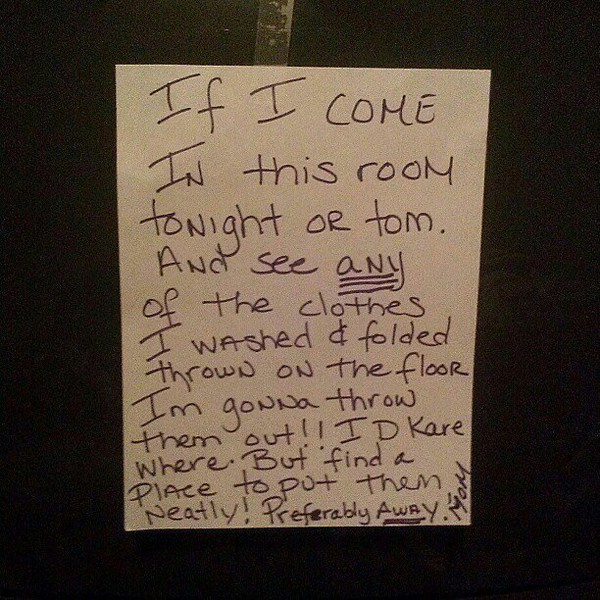 If I COME
IN this rooM
toNight OR tom.
ANd see aNy
of the clothes
I wAshed & folded
throwN ON the flooR
Im goNNa throw
them out!! I D Kare
where. But find a
PlAce to put them
Neatly! Preferably AwAy!
MOM